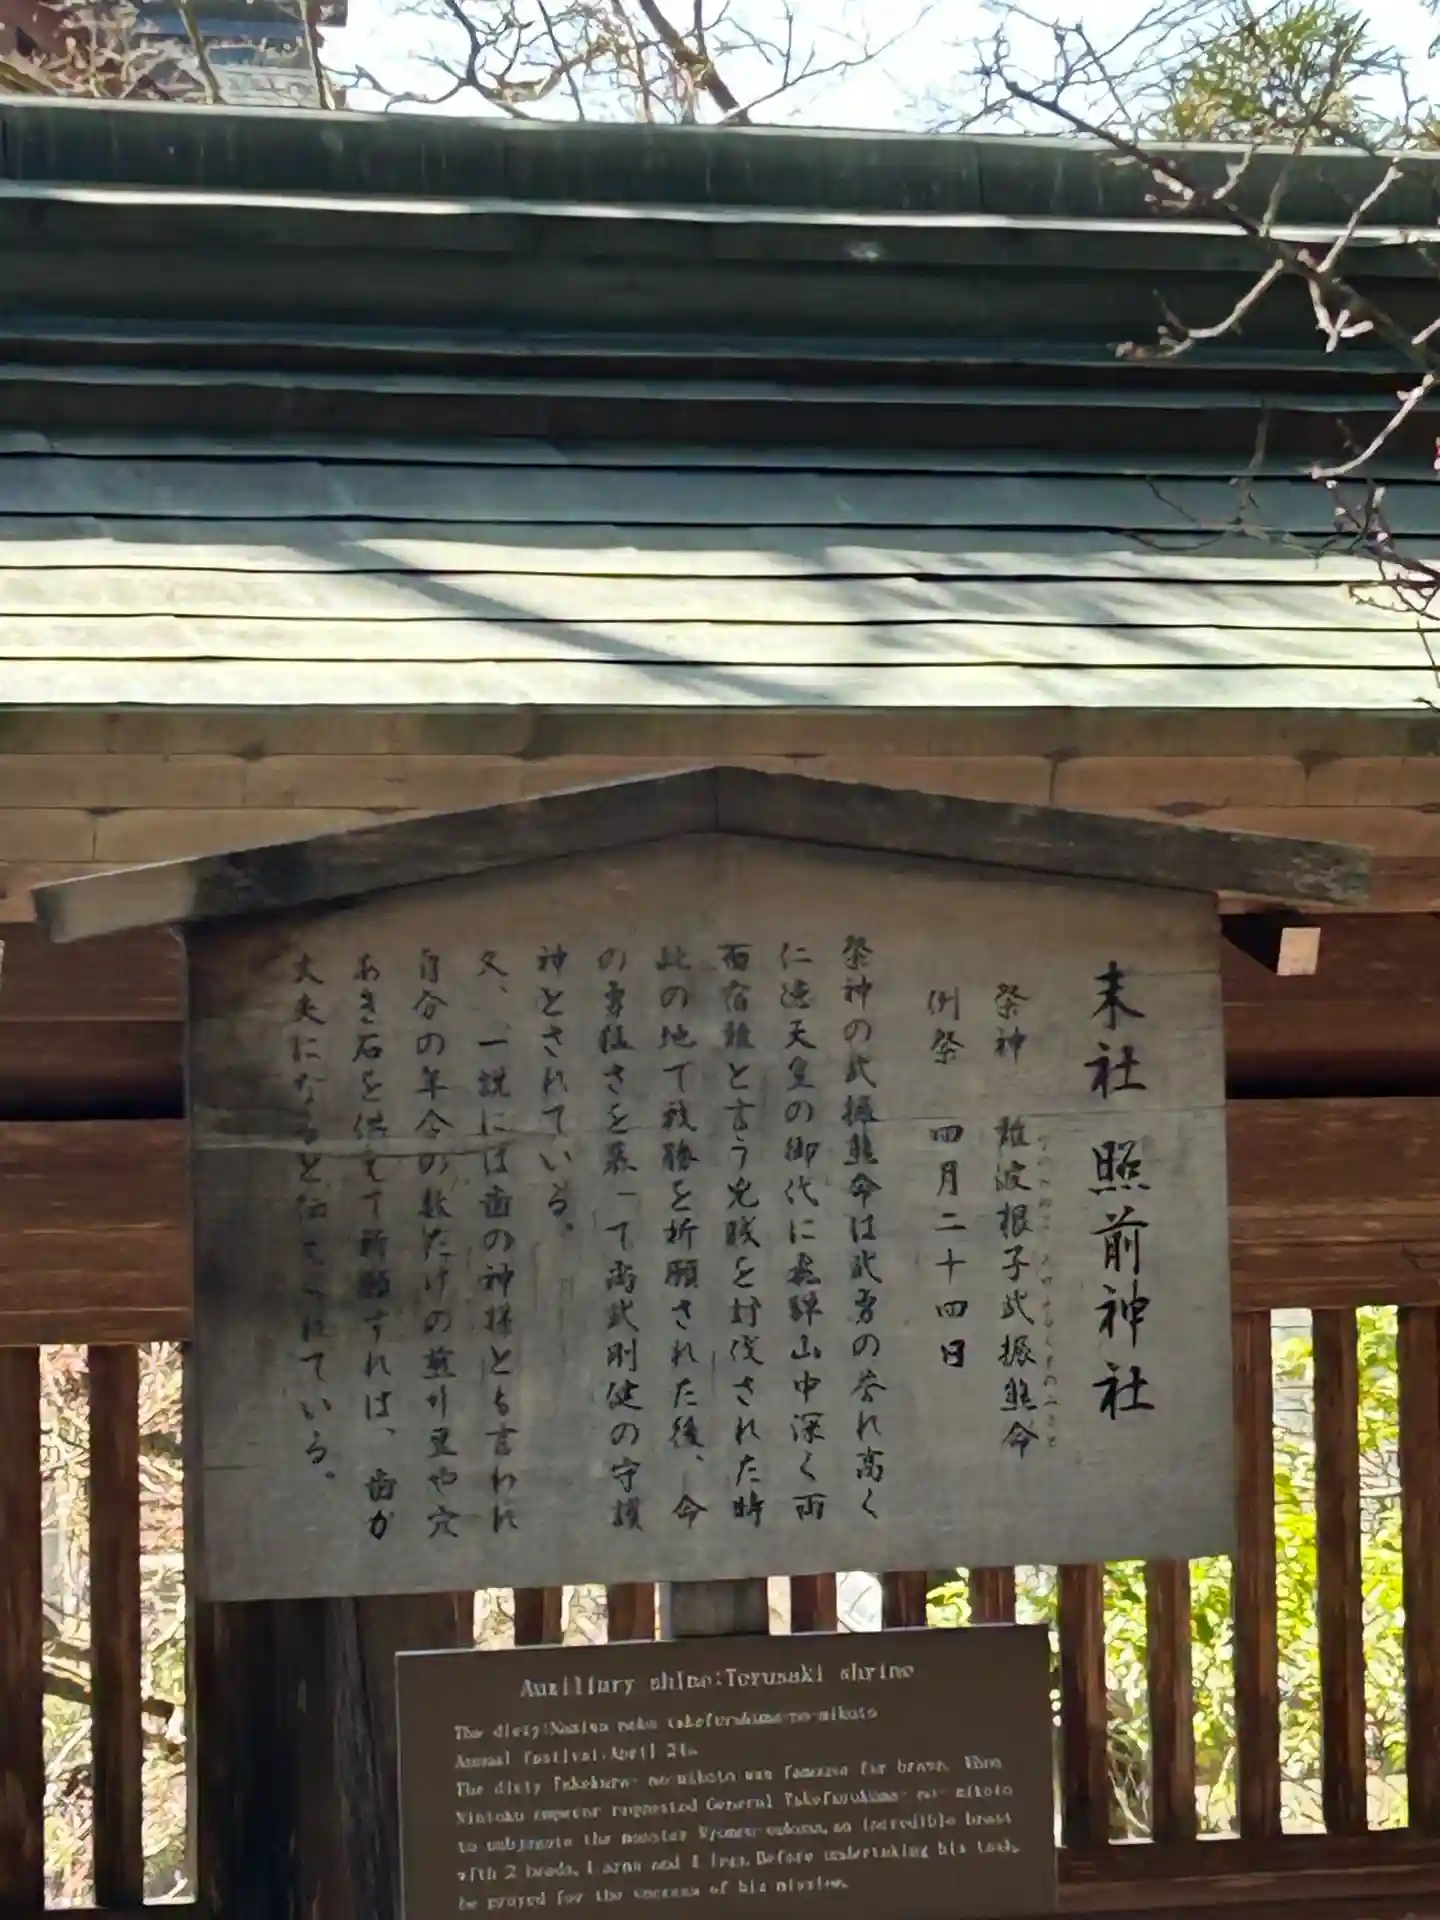 末社 照前神社
祭神 難波根子武振熊命
例祭 四月二十四日
祭神の武振熊命は武勇の誉れ高く
仁徳天皇の御代に飛騨山中深く両
面宿儺と言う兇賊を討伐された時
此の地て戦勝を祈願された後、命
の勇猛さを慕って尚武剛健の守護
神とされている。
又、一説には歯の神様とも言われ
自分の年令の数だけの煎り豆や穴
あき石を供えて祈願すれは、歯が
丈夫になると伝えられている。
Auxiliary shine:Terusaki shrine
The diety:Naniwa neko takefurukuma-no-mikoto
Annual festival:April 24.
The diety Takekuma- no-mikoto was famouse for brave. When
Nintoku emperor requested General Takefurukuma- no- mikoto
to subjugate the monster an incredible beast
with 2 heads, 4 arms and 4 legs. Before undertaking his task,
he prayed for the success of his mission.